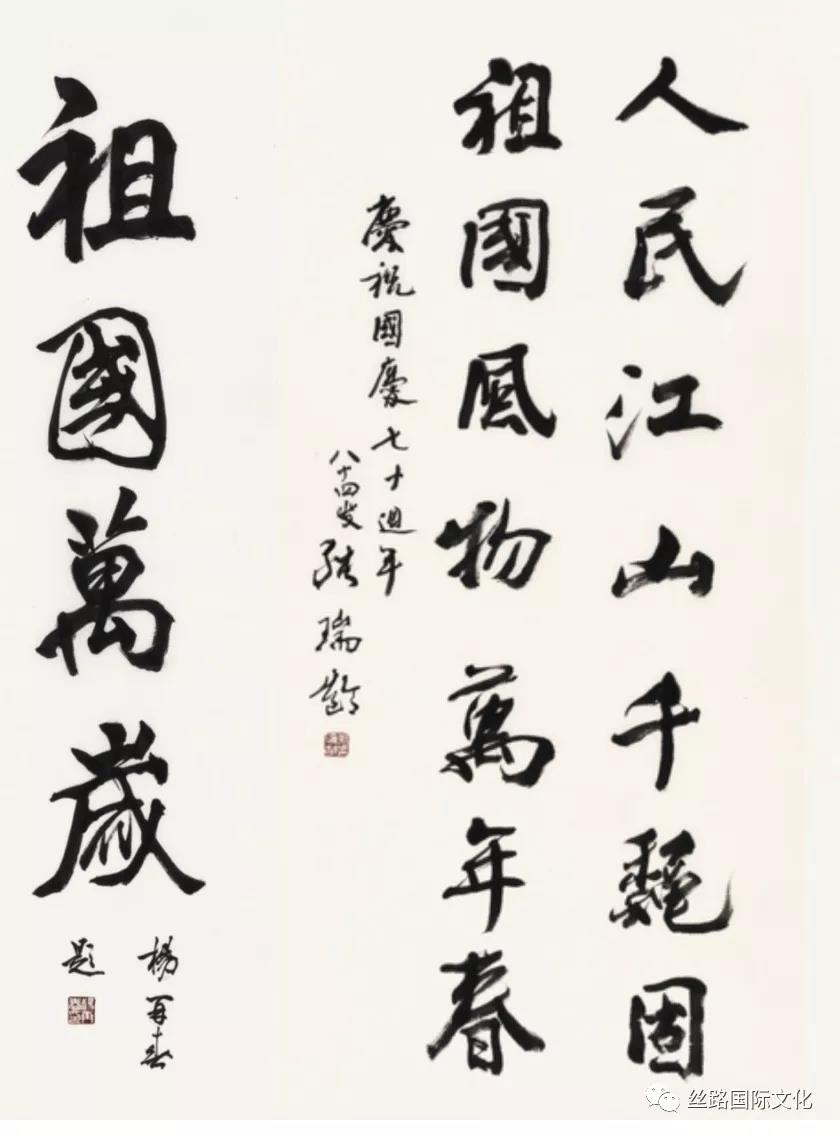 人民江山千穐固
祖國風物萬年春
慶祝國慶七十週年
八十四叟 張瑞齡
祖國萬歲
楊再春
題
丝路国际文化